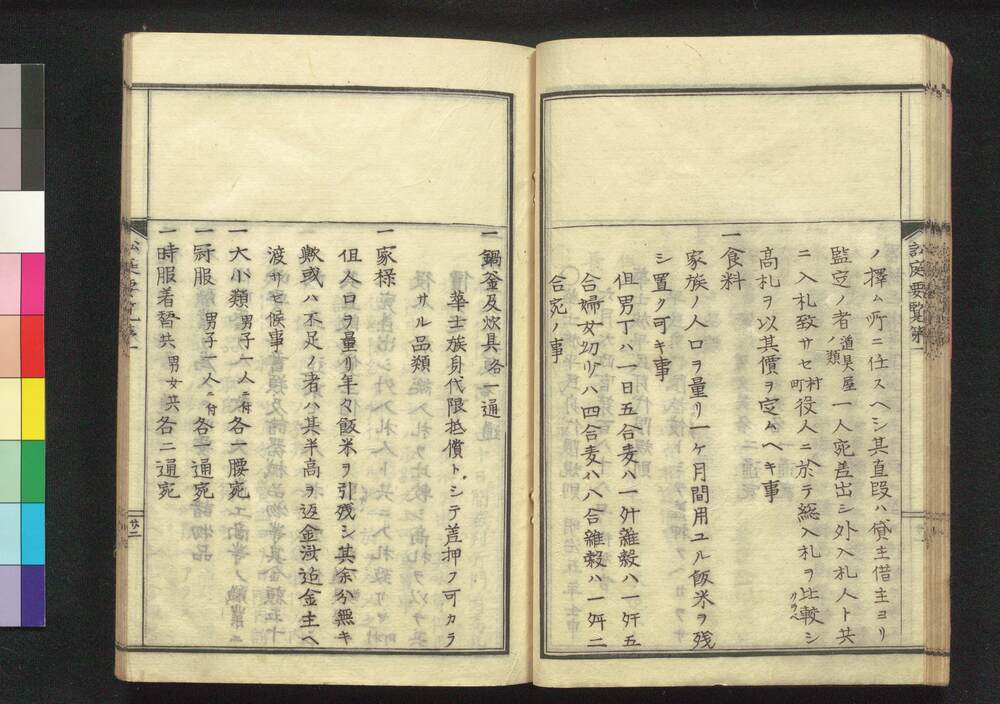 ノ擇ム所ニ任スヘシ其直段ハ貸主借主ヨリ
監定ノ者道具屋ノ類一人宛差出シ外入札人ト共
ニ入札致サセ村町役人ニ於テ総入札ヲ比較シクラベ
高札ヲ以其價ヲ定ムヘキ事
一食料
家族ノ人口ヲ量リ一ケ月間用ユル飯米ヲ残
シ置ク可キ事
但男丁ハ一日五合麦ハ一舛雑穀ハ一舛五
合婦女幼少ハ四合麦ハ八合雑穀ハ一舛二
合宛ノ事
訟庭要覧第一
一鍋釜及炊具各一通
華士族身代限抵償トシテ差押フ可カラ
サル品類
一家禄
但人口ヲ量リ年々飯米ヲ引残シ其余分無キ
歟或ハ不足ノ者ハ其半高ヲ返金済迄金主ヘ
渡サセ候事
一大小類男子一人ニ付各一腰宛
一冠服男子一人ニ付各一通宛
一時服着替共男女共各二通宛
廿二